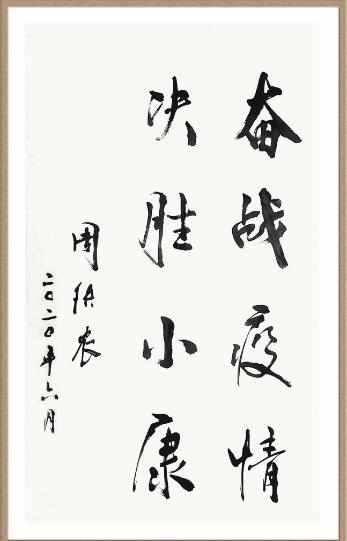 奋战疫情
决胜小康
周铁农
二〇二〇年六月